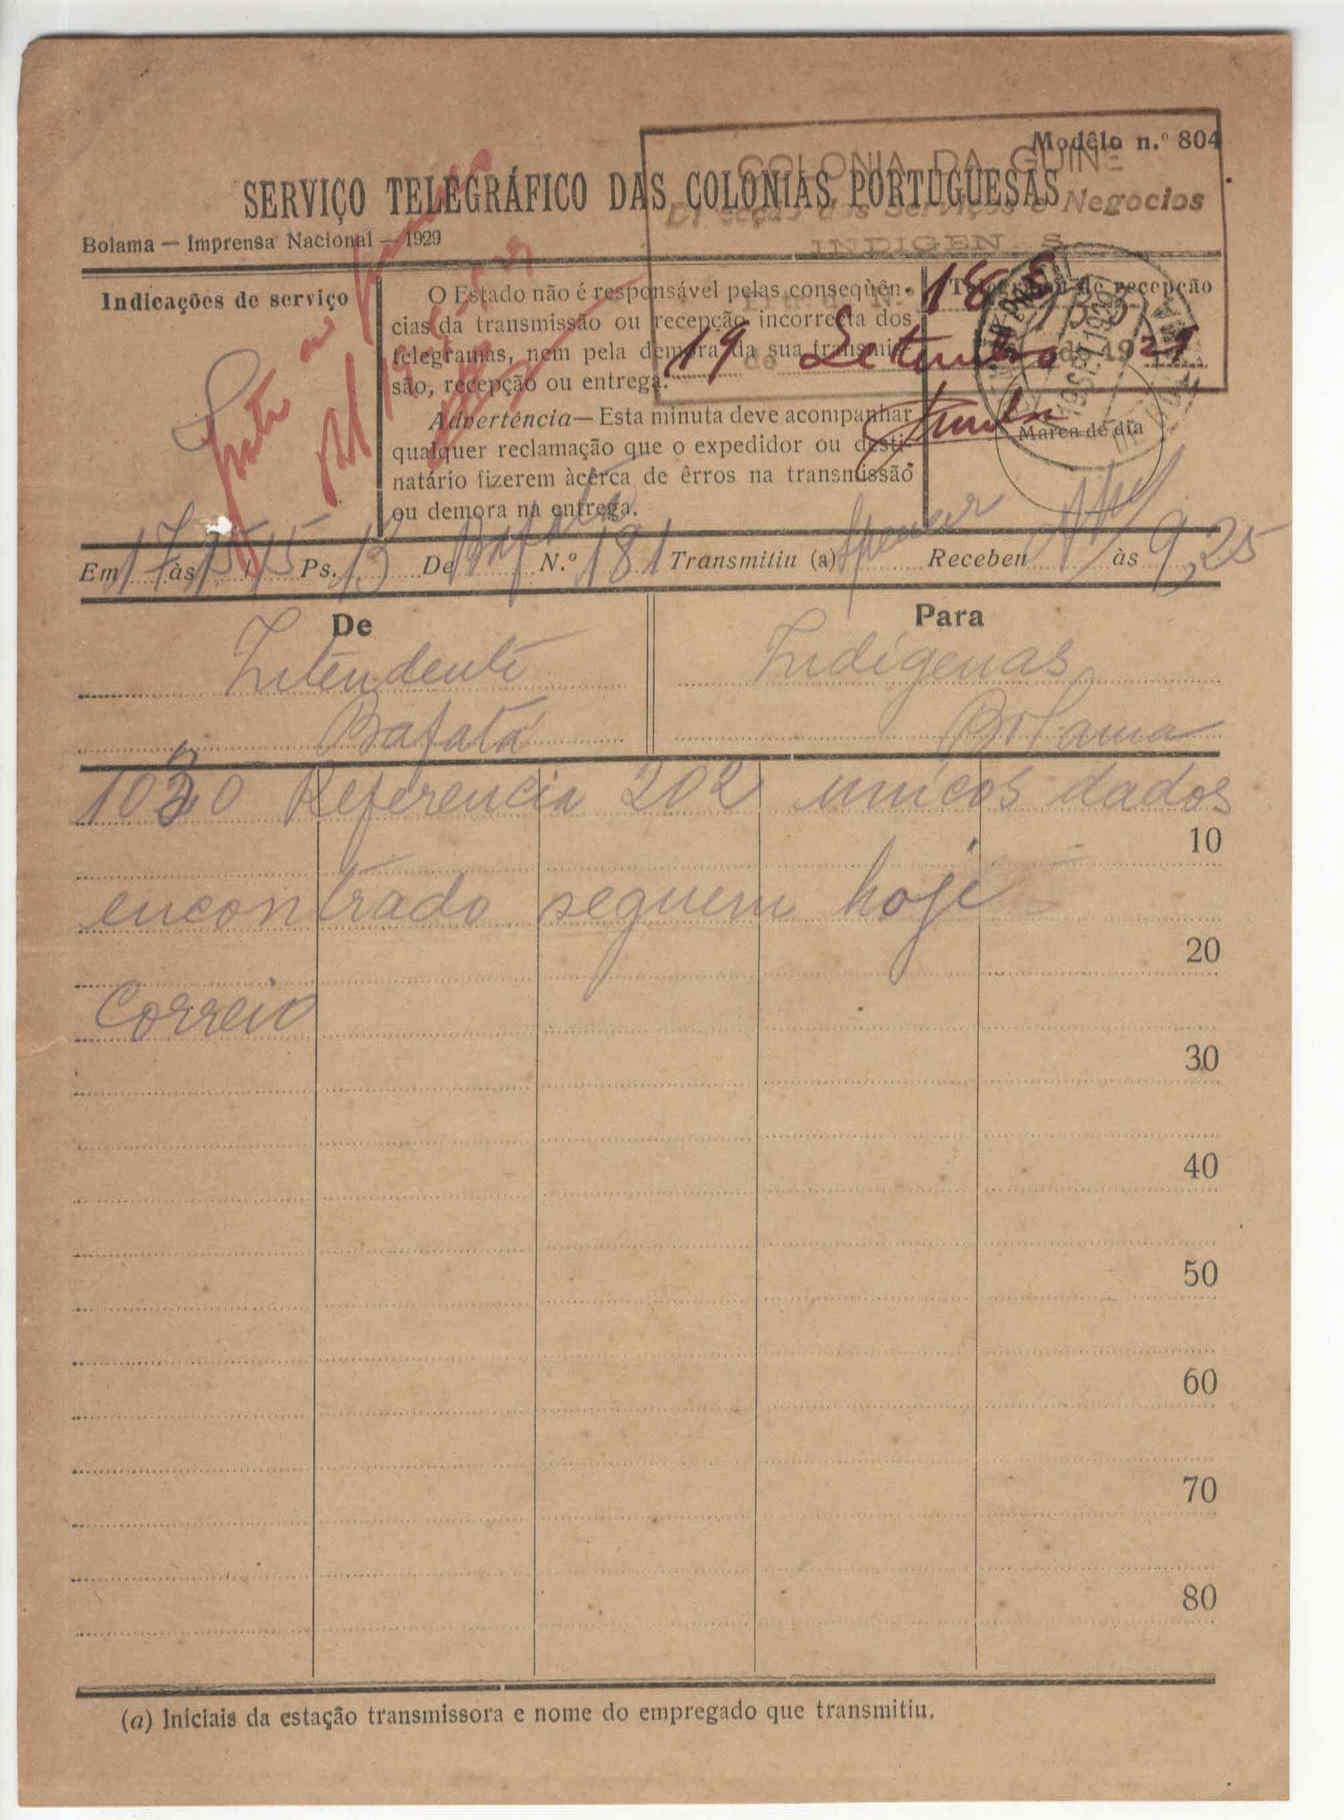 Modêlo n.º 804
COLONIA DA GUINE
SERVIÇO TELEGRÁFICO DAS COLONIAS PORTUGUESAS
Direcção dos Serviços e Negocios
Bolama — Imprensa Nacional — 1929
INDIGENAS
Indicações de serviço
O Estado não é responsável pelas conseqüên-
cias da transmissão ou recepção incorrecta dos
telegramas, nem pela demora da sua transmis-
são, recepção ou entrega.
Advertência — Esta minuta deve acompanhar
qualquer reclamação que o expedidor ou desti-
natário fizerem àcêrca de êrros na transmissão
ou demora na entrega.
Telegrama de recepção
19 de Setembro de 1929
Marca de dia
Em 17 às 15/15 Ps. 13 De Bafatá N.º 181 Transmitiu (a) Spencer Recebeu às 9,25
De
Para
Intendente
Indígenas
Bafatá
Bolama
1030 Referencia 202 unicos dados
10
encontrado seguem hoje
20
Correio
30
40
50
60
70
80
(a) Iniciais da estação transmissora e nome do empregado que transmitiu.